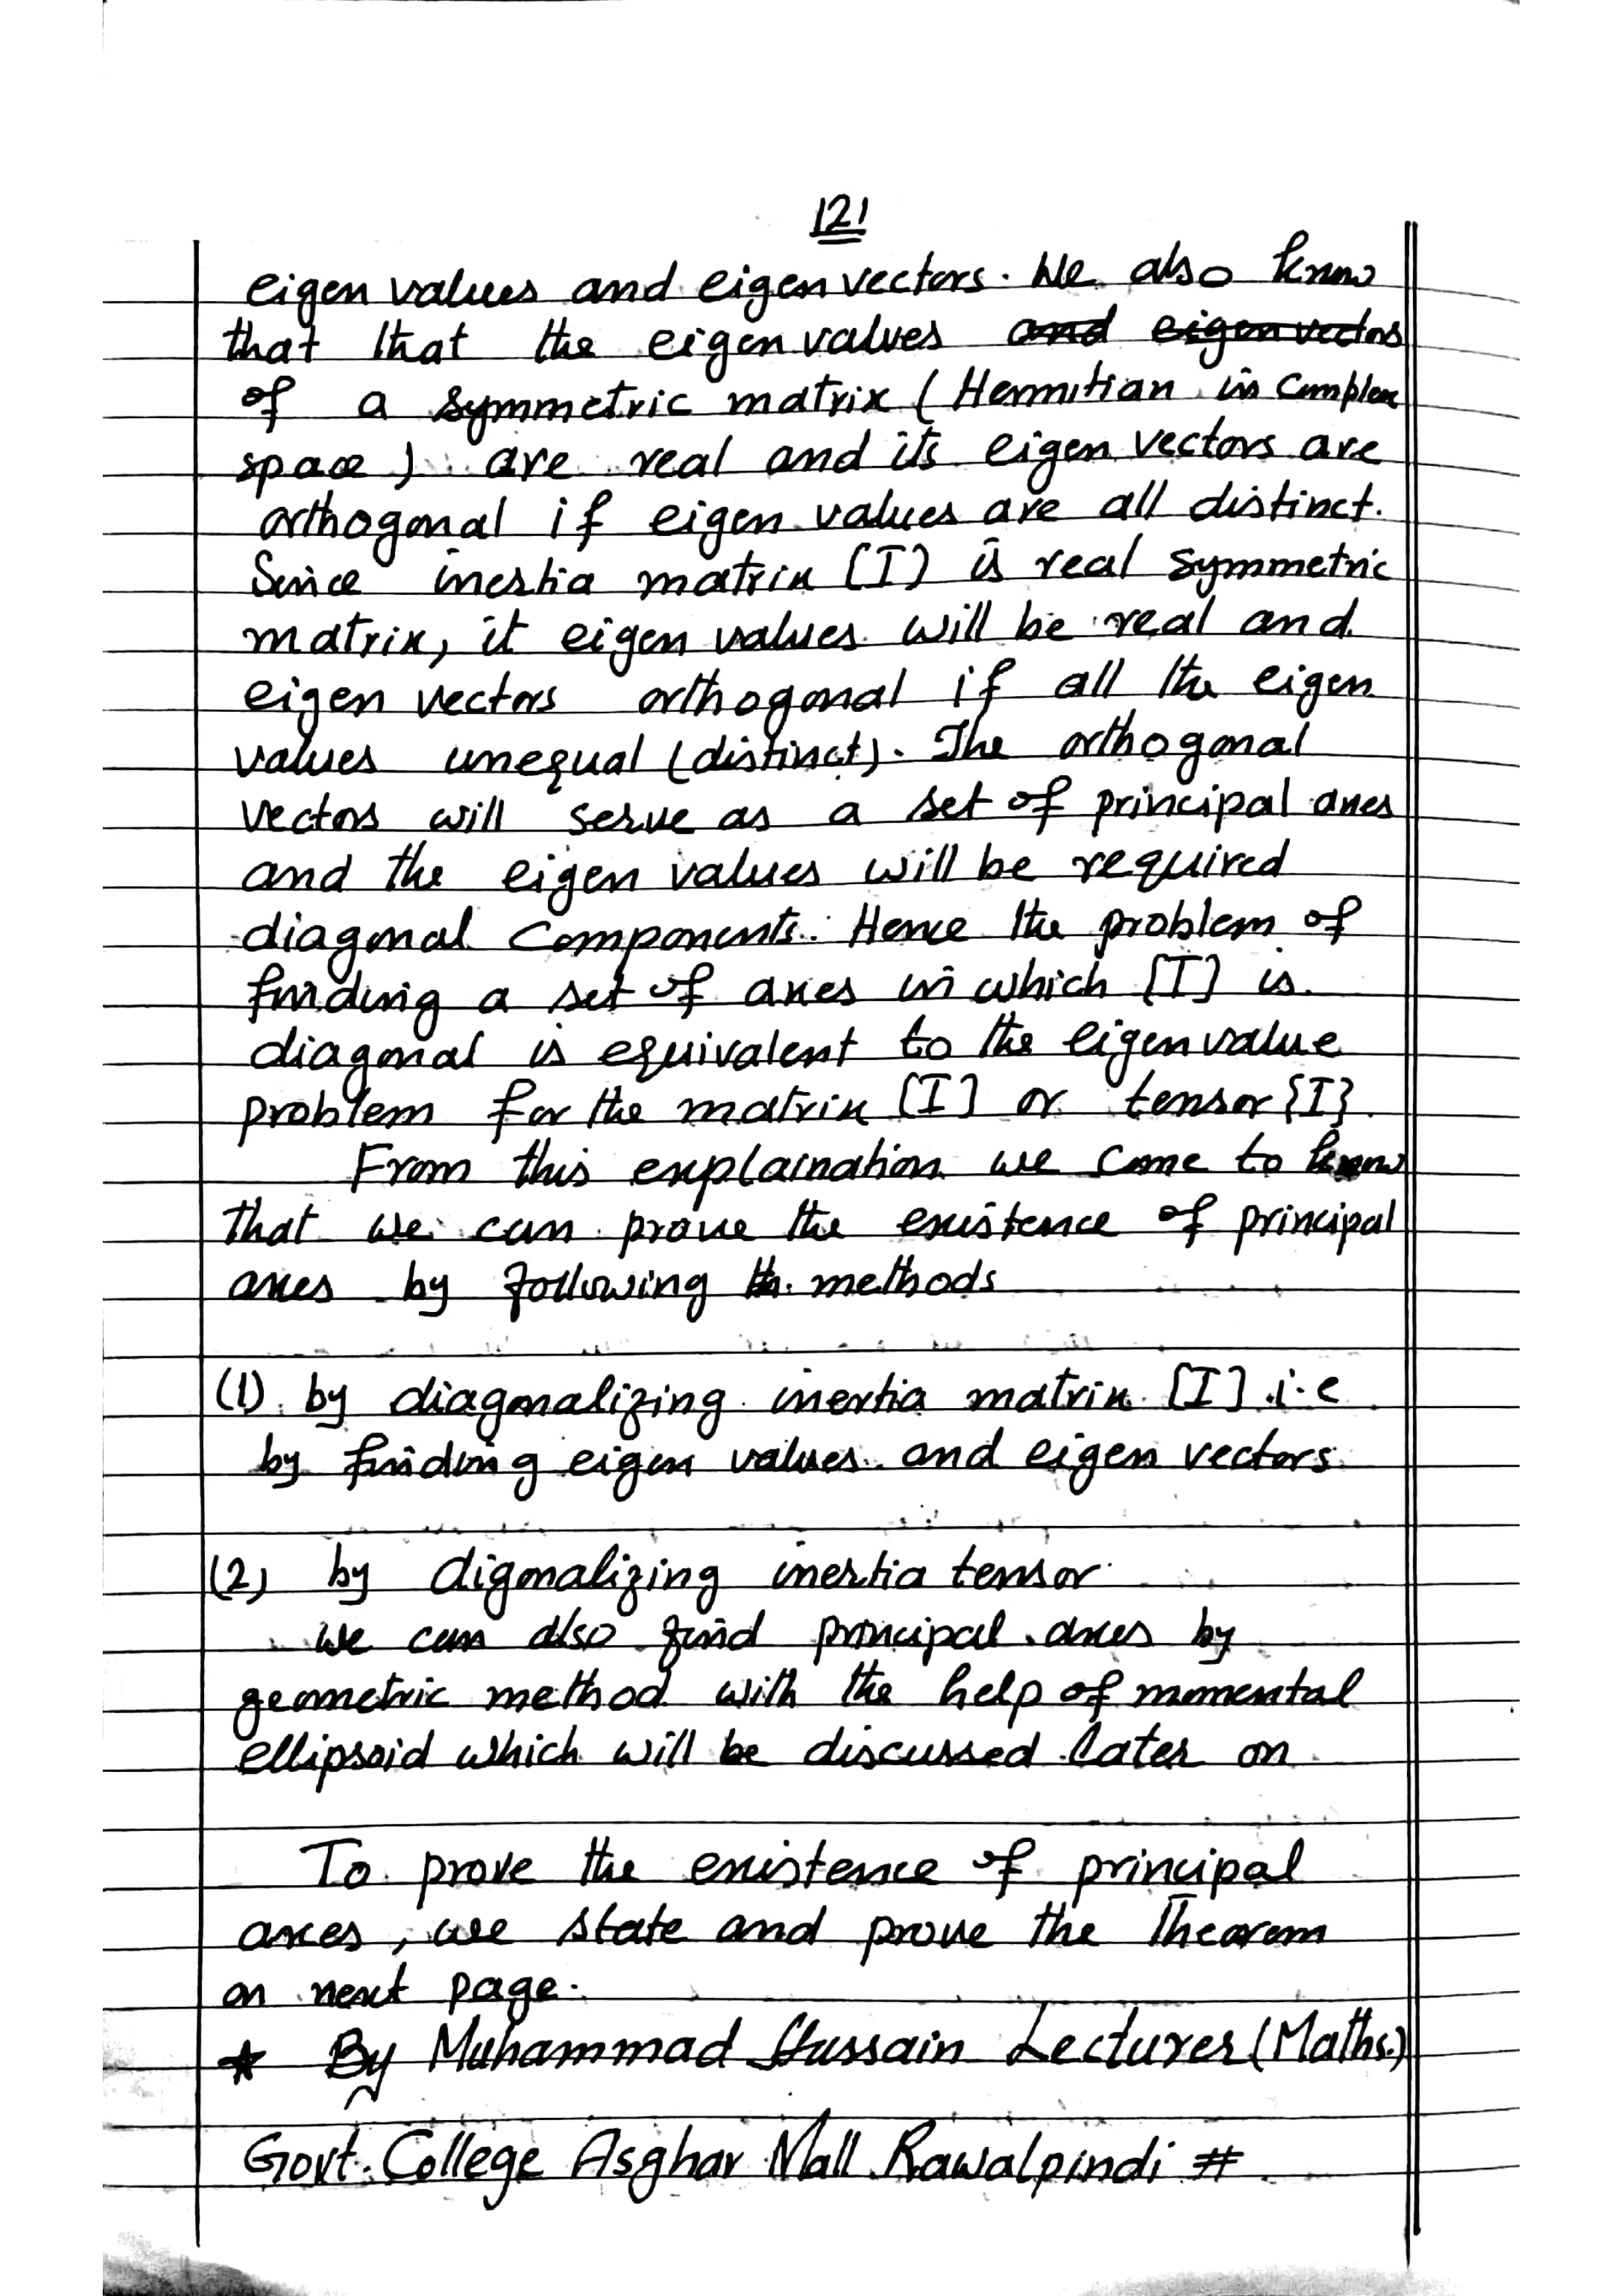 121
eigen values and eigen vectors. We also know
that that the eigen values and eigen vectors
of a symmetric matrix (Hermitian in complex
space) are real and its eigen vectors are
orthogonal if eigen values are all distinct.
Since inertia matrix [I] is real symmetric
matrix, it eigen values will be real and
eigen vectors orthogonal if all the eigen
values unequal (distinct). The orthogonal
vectors will serve as a set of principal axes
and the eigen values will be required
diagonal components. Hence the problem of
finding a set of axes in which [I] is
diagonal is equivalent to the eigen value
problem for the matrix [I] or tensor {I}.
From this explaination we come to know
that we can prove the existence of principal
axes by following th. methods
(1) by diagonalizing inertia matrix [I] i.e
by finding eigen values and eigen vectors
(2) by digonalizing inertia tensor
we can also find principal axes by
geometric method with the help of momental
ellipsoid which will be discussed later on
To prove the existence of principal
axes, we state and prove the Theorem
on next page.
* By Muhammad Hussain Lecturer (Maths.)
Govt. College Asghar Mall Rawalpindi #